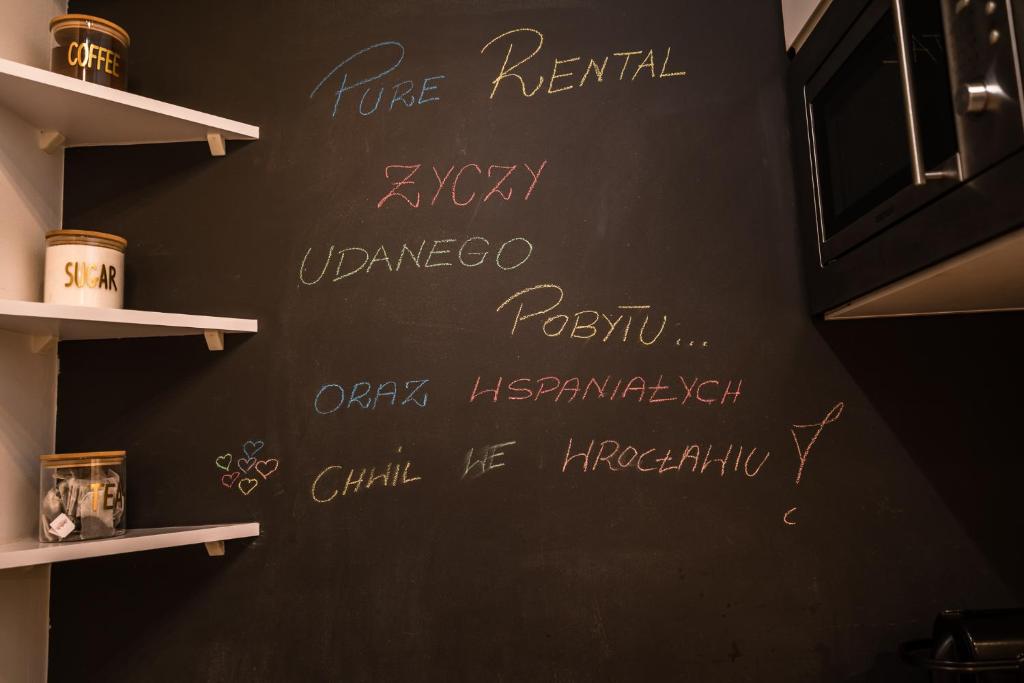 COFFEE
SUGAR
TEA
PURE RENTAL
ŻYCZY
UDANEGO
POBYTU...
ORAZ WSPANIAŁYCH
CHWIL WE WROCŁAWIU!